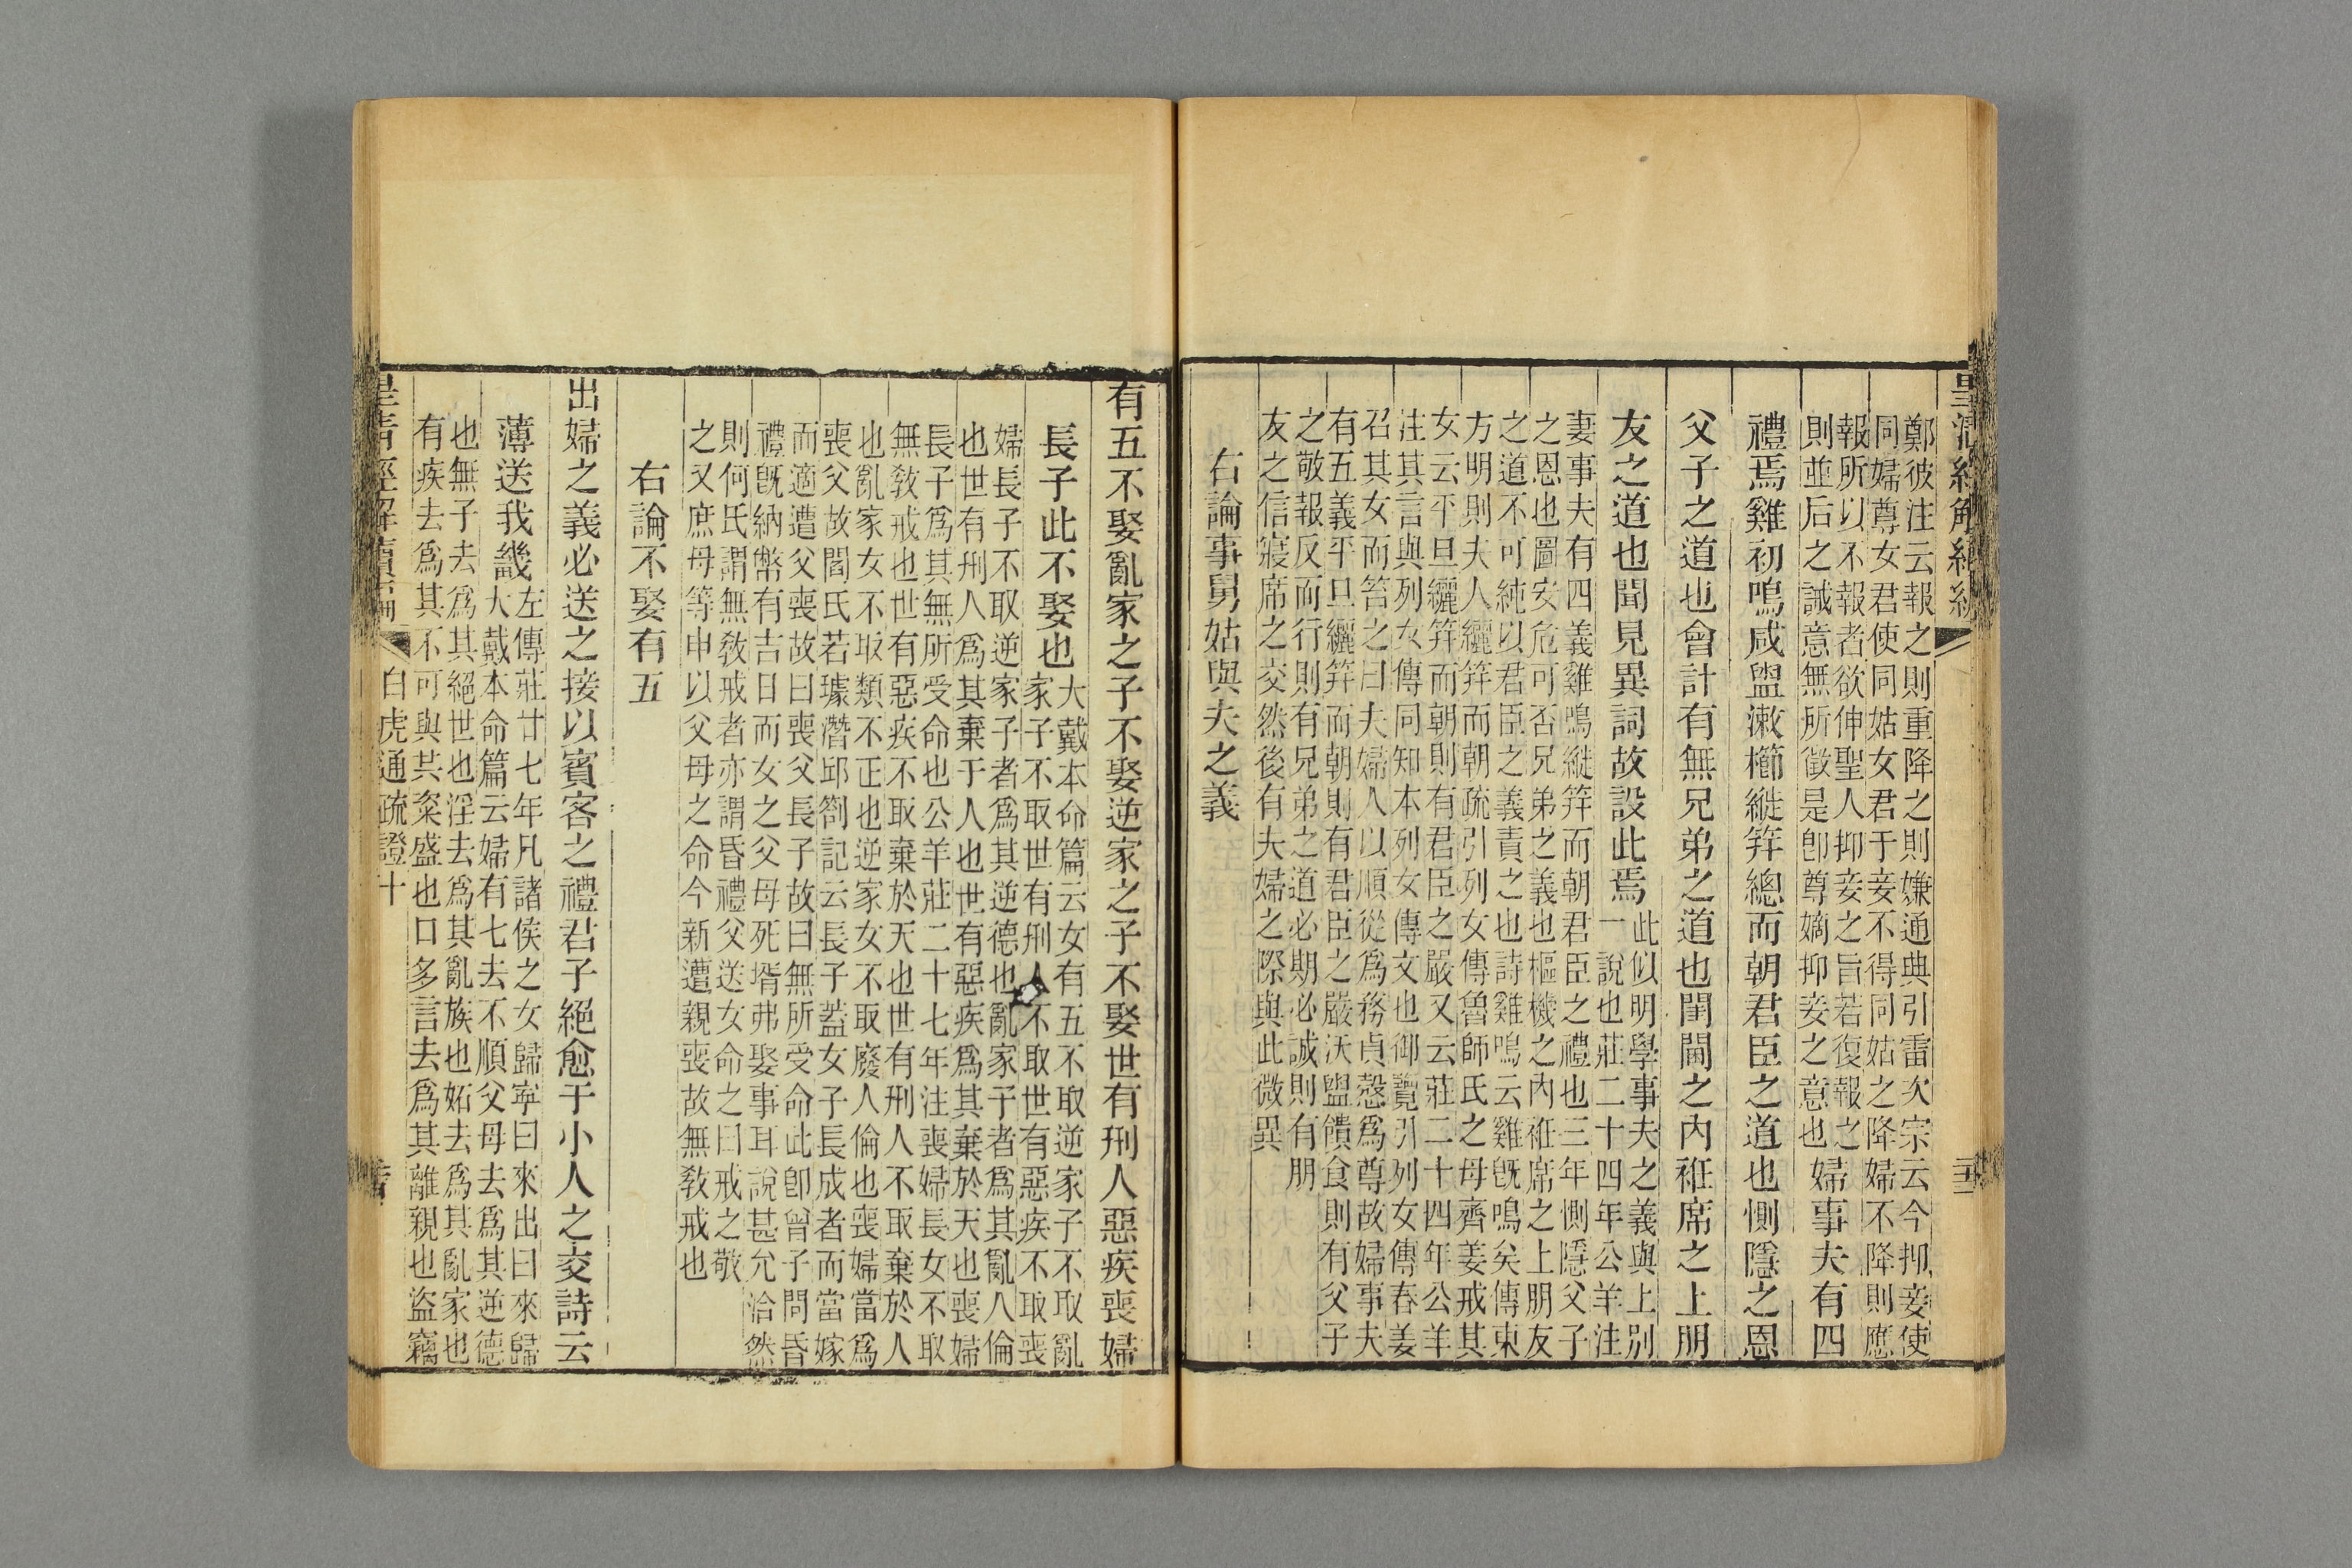 鄭彼注云報之則重降之則嫌通典引雷次宗云今抑妾使
同婦尊女君使同姑女君于妾不得同姑之降婦不降則應
報所以不報者欲伸聖人抑妾之旨若復報之
則並后之誡意無所徵是卽尊嫡抑妾之意也
婦事夫有四
禮焉雞初鳴咸盥漱櫛縰笄總而朝君臣之道也惻隱之恩
父子之道也會計有無兄弟之道也閨閫之內袵席之上朋
友之道也聞見異詞故設此焉
此似明學事夫之義與上別
一說也莊二十四年公羊注
妻事夫有四義雞鳴縰笄而朝君臣之禮也三年惻隱父子
之恩也圖安危可否兄弟之義也樞機之內袵席之上朋友
之道不可純以君臣之義責之也詩雞鳴云雞旣鳴矣傳東
方明則夫人纚笄而朝疏引列女傳魯師氏之母齊姜戒其
女云平旦纚笄而朝則有君臣之嚴又云莊二十四年公羊
注其言與列女傳同知本列女傳文也御覽引列女傳春姜
召其女而笞之曰夫婦人以順從爲務貞慤爲尊故婦事夫
有五義平旦纚笄而朝則有君臣之嚴沃盥饋食則有父子
之敬報反而行則有兄弟之道必期必誠則有朋
友之信寢席之交然後有夫婦之際與此微異
右論事舅姑與夫之義
有五不娶亂家之子不娶逆家之子不娶世有刑人惡疾喪婦
長子此不娶也
大戴本命篇云女有五不取逆家子不取亂
家子不取世有刑人不取世有惡疾不取喪
婦長子不取逆家子者爲其逆德也亂家子者爲其亂人倫
也世有刑人爲其棄于人也世有惡疾爲其棄於天也喪婦
長子爲其無所受命也公羊莊二十七年注喪婦長女不取
無敎戒也世有惡疾不取棄於天也世有刑人不取棄於人
也亂家女不取類不正也逆家女不取廢人倫也喪婦當爲
喪父故閻氏若璩潛邱劄記云長子蓋女子長成者而當嫁
而適遭父喪故曰喪父長子故曰無所受命此卽曾子問昏
禮旣納幣有吉日而女之父母死壻弗娶事耳說甚允洽然
則何氏謂無敎戒者亦謂昏禮父送女命之曰戒之敬
之又庶母等申以父母之命今新遭親喪故無敎戒也
右論不娶有五
出婦之義必送之接以賓客之禮君子絕愈于小人之交詩云
薄送我畿
左傳莊廿七年凡諸侯之女歸寧曰來出曰來歸
大戴本命篇云婦有七去不順父母去爲其逆德
也無子去爲其絕世也淫去爲其亂族也妬去爲其亂家也
有疾去爲其不可與共粢盛也口多言去爲其離親也盜竊
白虎通疏證十